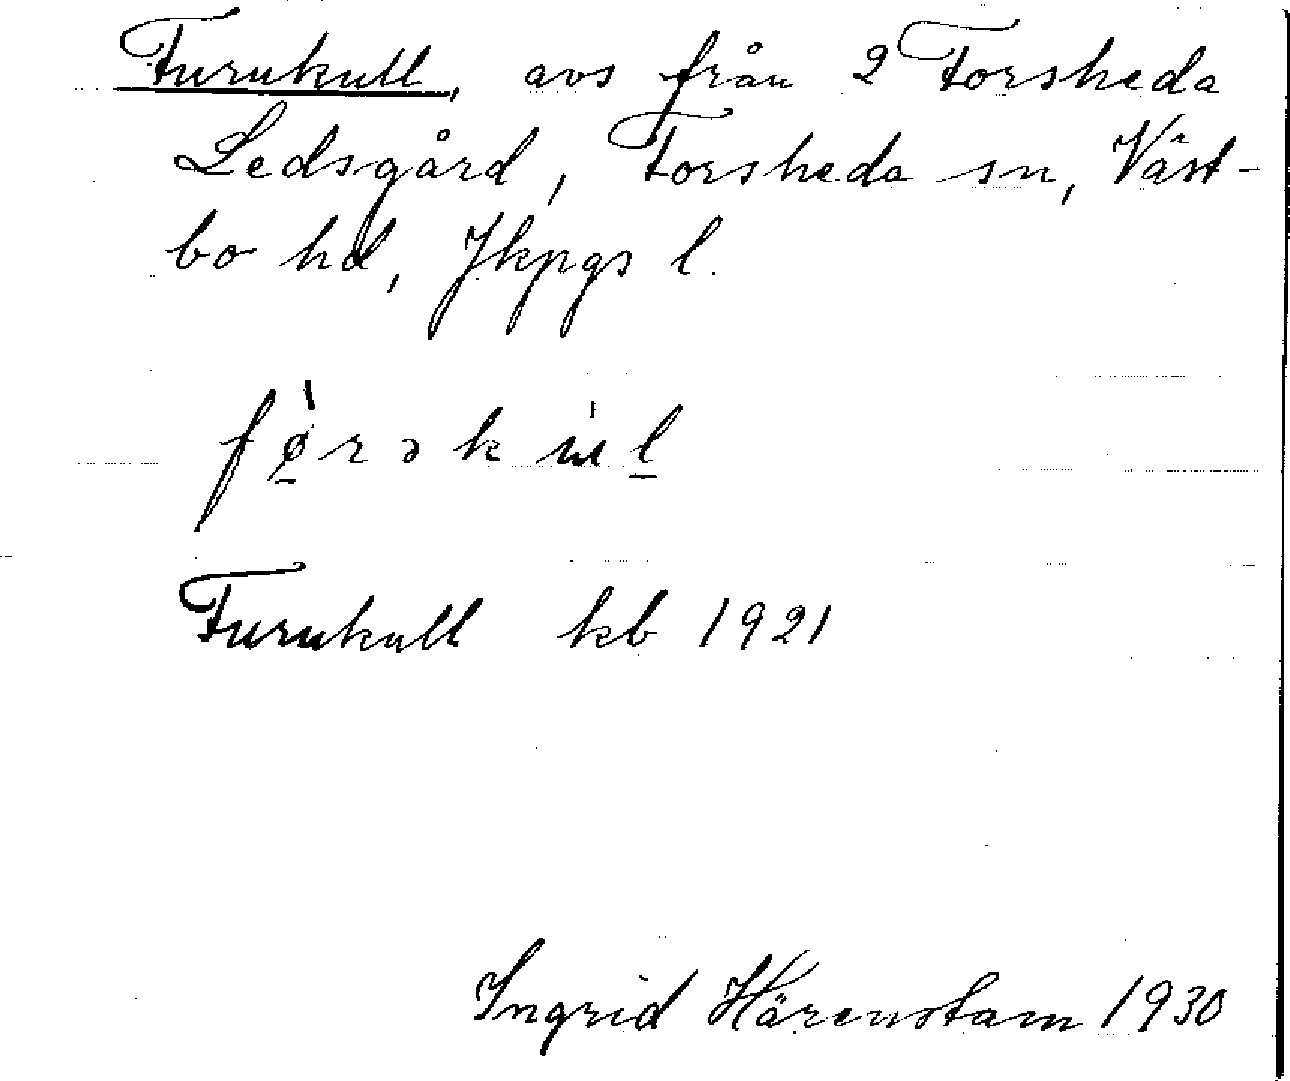 Furukull, avs från 2 Forsheda
Ledsgård, Forsheda sn, Väst-
bo hd, Jkpgs l.
Furukull kb 1921
Ingrid Härenstam 1930